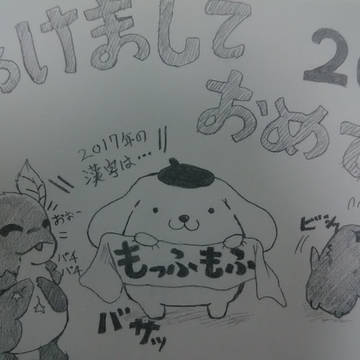 あけまして
おめで
20
2017年の
漢字は…
おおー
パチ
パチ
もっふもふ
バサッ
ビシッ